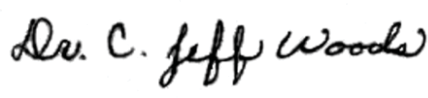 Dr. C. Jeff Woods